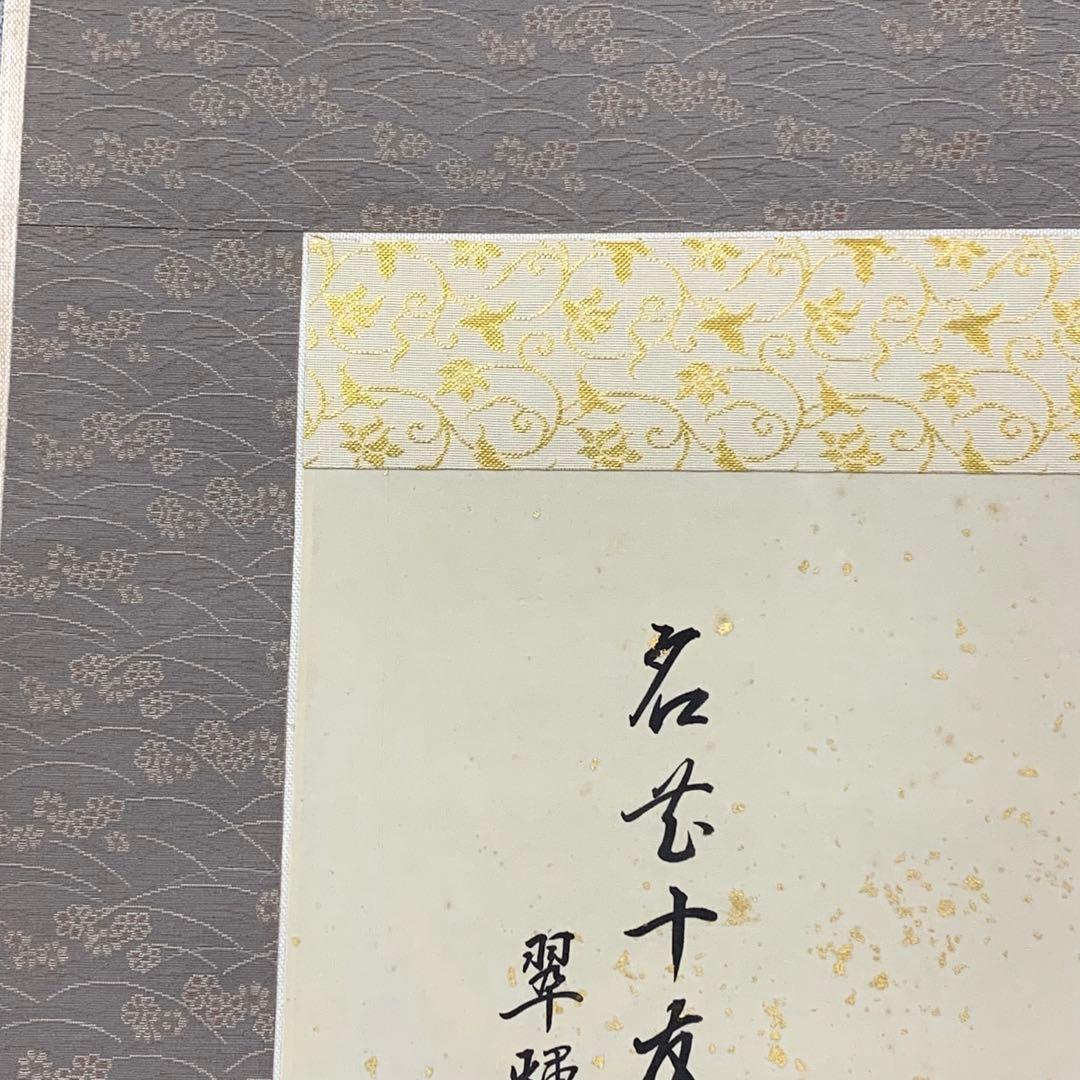 名花十友
翠